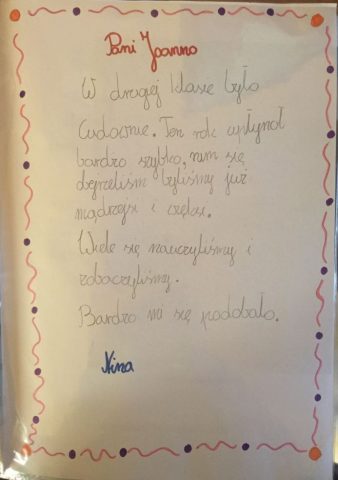 Pani Joanno
W drugiej klasie było
Cudownie. Ten rok upłynął
bardzo szybko, nim się
obejrzeliśm byliśmy już
mądrzejsi i
Wiele się nauczyliśmy i
zobaczyliśmy.
Bardzo mi się podobało.
Nina